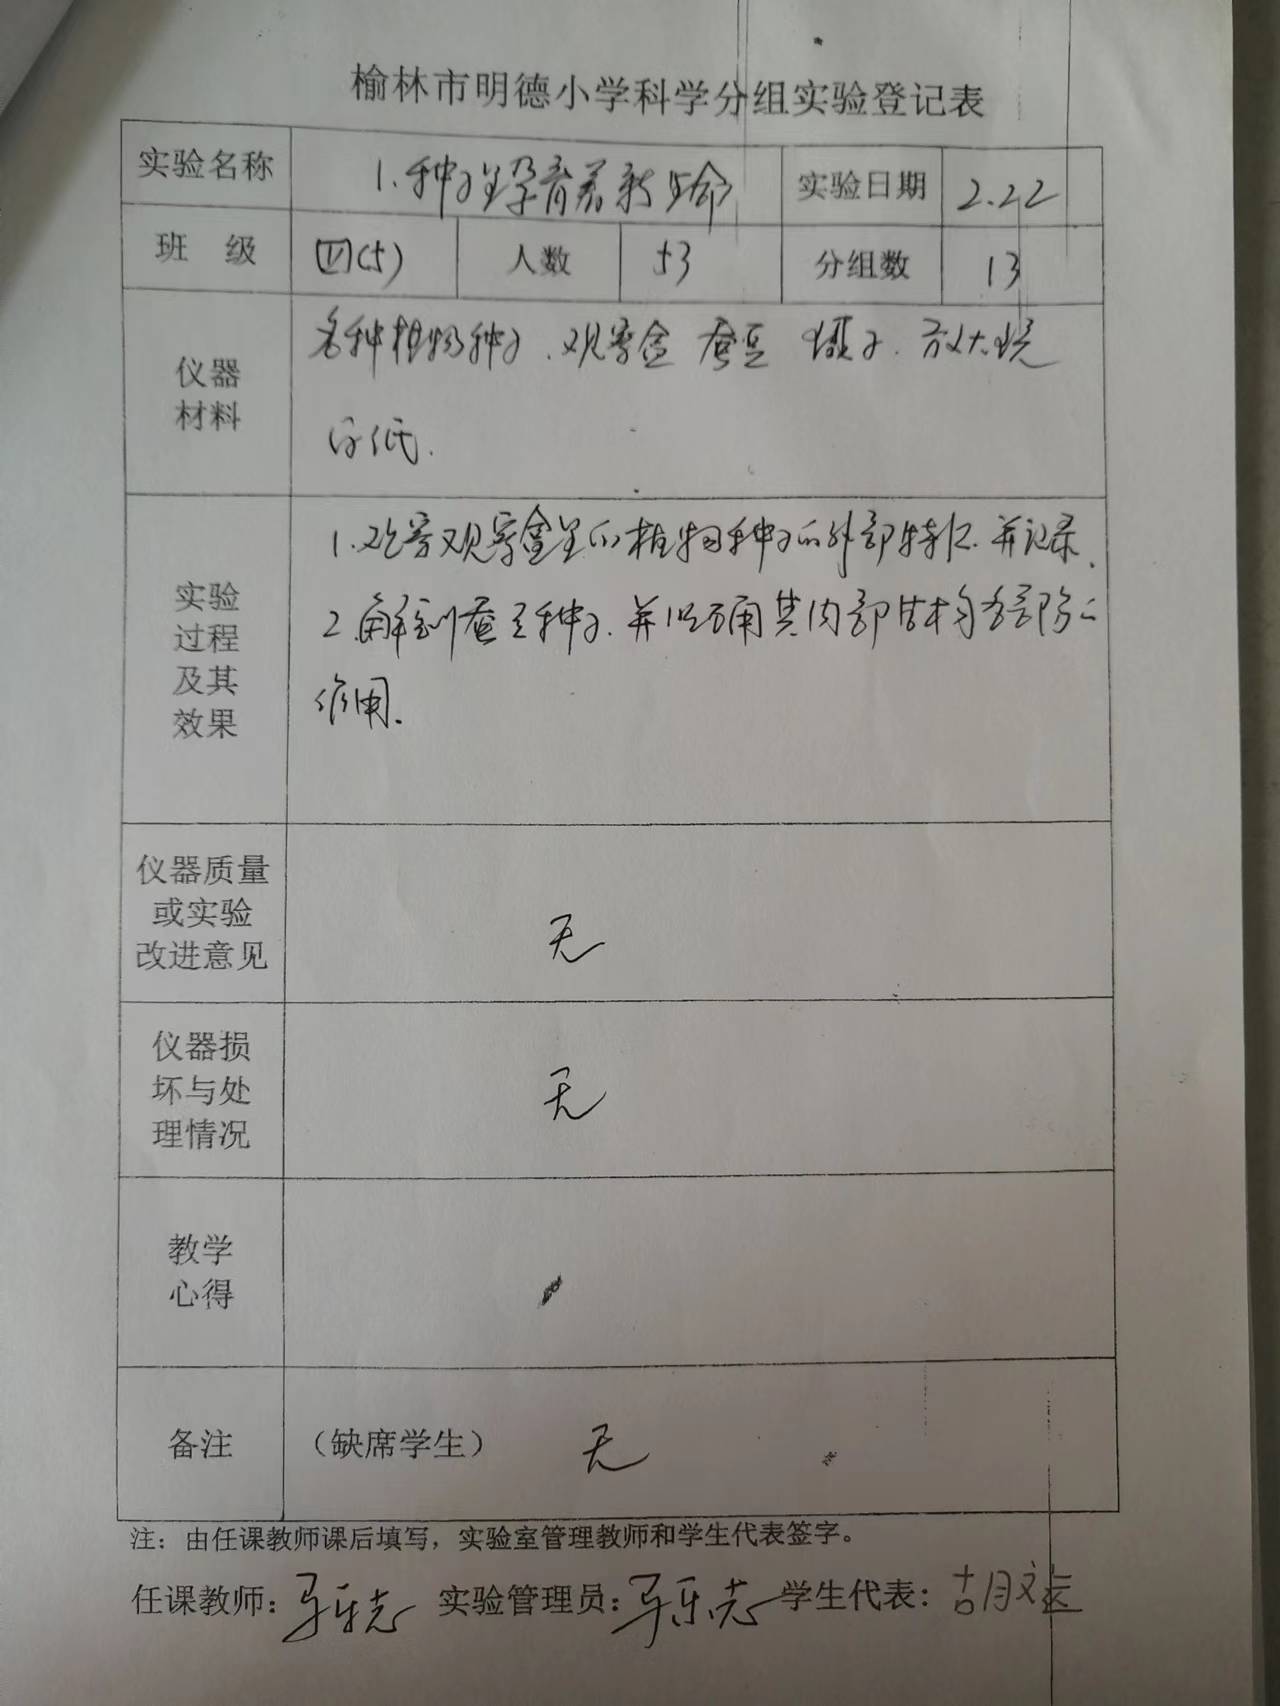 榆林市明德小学科学分组实验登记表
实验名称 1.种子里孕育着新生命 实验日期 2.22
班 级 四(5) 人数 53 分组数 13
仪器材料 各种植物种子、观察盒 蚕豆 镊子、放大镜
实验过程及其效果 1.观察观察盒里的植物种子的外部特征.并记录.
2.解剖蚕豆种子.并明确其内部结构各部分
作用.
仪器质量或实验改进意见 无
仪器损坏与处理情况 无
教学心得
备注 （缺席学生） 无
注：由任课教师课后填写，实验室管理教师和学生代表签字。
任课教师: 实验管理员: 学生代表: